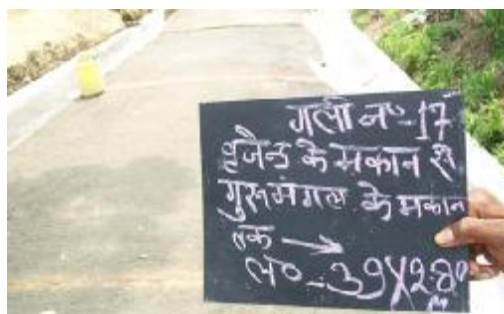 गली नं०-17
बृजेन्द्र के मकान से
गुरुमंगल के मकान
तक →
ल०-39X2.80